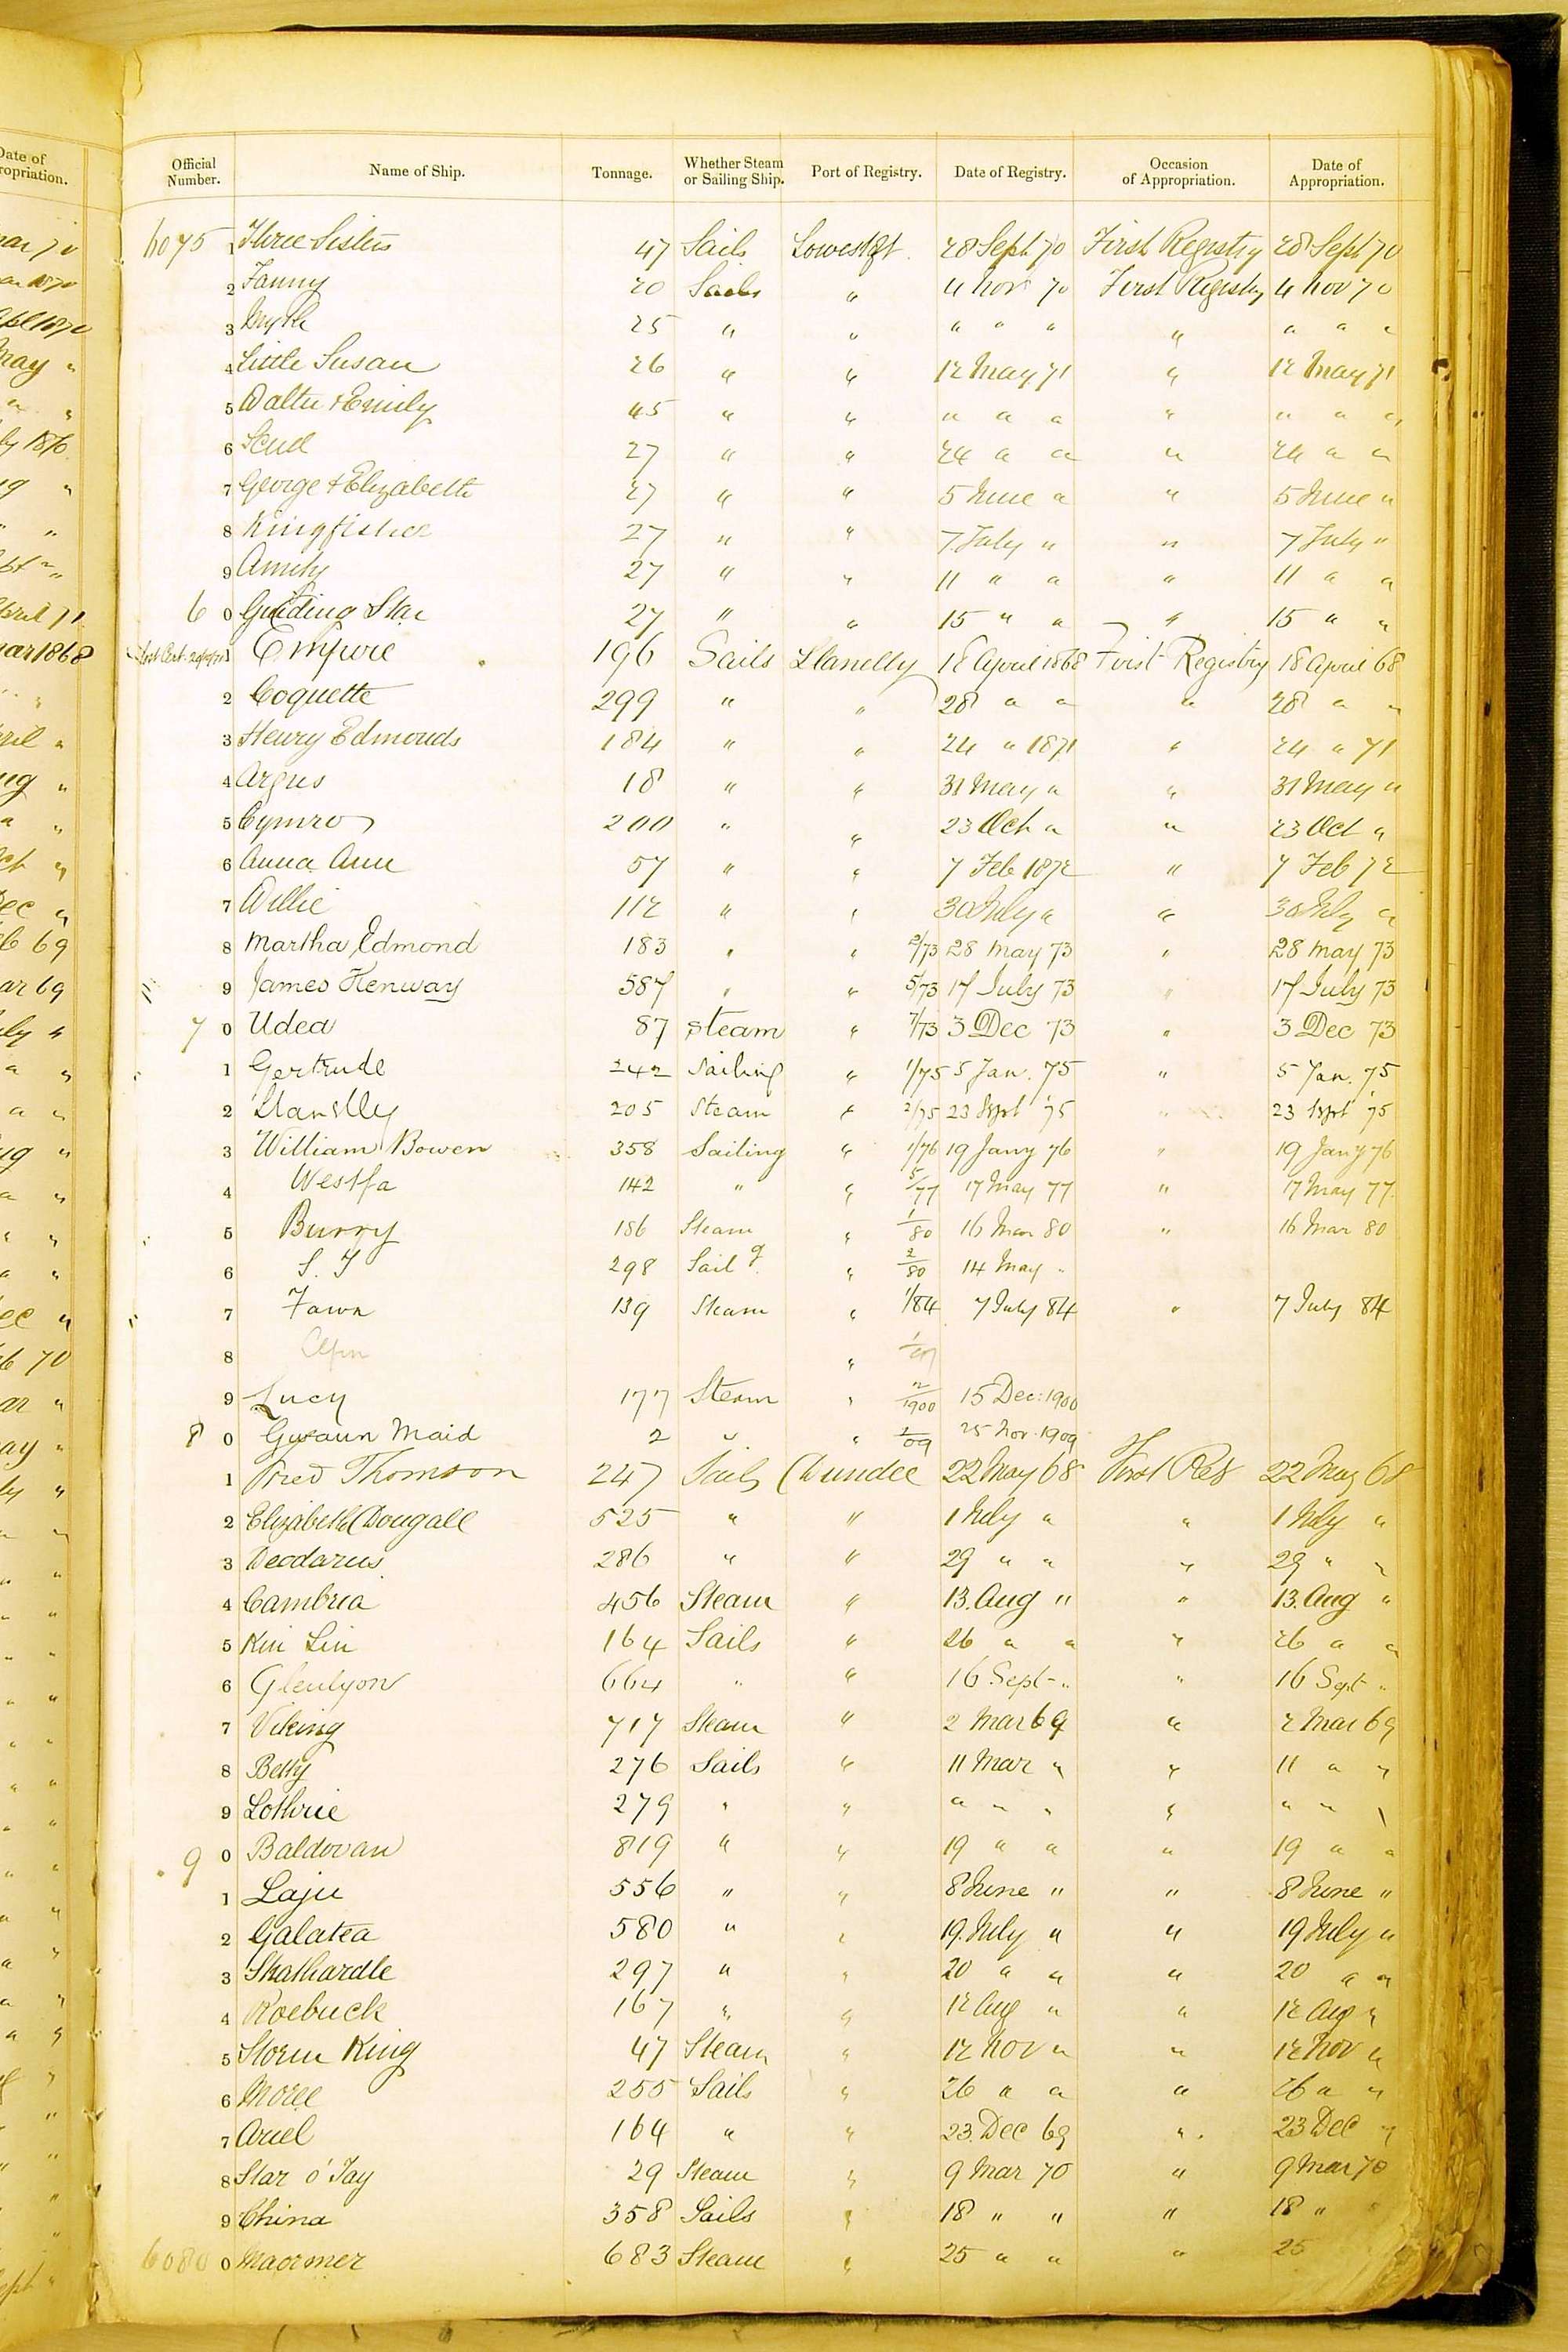 Date of
ropriation.
Official Number. Name of Ship. Tonnage. Whether Steam or Sailing Ship. Port of Registry. Date of Registry. Occasion of Appropriation. Date of Appropriation.
6075 1 Three Sisters 47 Sails Lowestoft 28 Sept 70 First Registry 28 Sept 70
2 Fanny 20 Sails " 4 Nov 70 First Registry 4 Nov 70
3 25 " " " " " " " " "
4 Little Susan 26 " " 12 May 71 " 12 May 71
5 Walter & Emily 45 " " " " " " " " "
6 Scud 27 " " 24 " " " 24 " "
7 George & Elizabeth 27 " " 5 June " " 5 June "
8 Kingfisher 27 " " 7 July " " 7 July "
9 Amity 27 " " 11 " " " 11 " "
6 0 Guiding Star 27 " " 15 " " " 15 " "
1 Empire 196 Sails Llanelly 18 April 1868 First Registry 18 April 68
2 Coquette 299 " " 28 " " " 28 " "
3 Henry Edmonds 184 " " 24 " 1871 " 24 " 71
4 Argus 18 " " 31 May " " 31 May "
5 Cymro 200 " " 23 Oct " " 23 Oct "
6 Anna Ann 57 " " 7 Feb 1872 " 7 Feb 72
7 Willie 112 " " 30 July " " 30 July "
8 Martha Edmond 183 " " 2/73 28 May 73 " 28 May 73
9 James Kenway 587 " " 5/73 17 July 73 " 17 July 73
7 0 Udea 87 Steam " 7/73 3 Dec 73 " 3 Dec 73
1 Gertrude 242 Sailing " 1/75 5 Jan. 75 " 5 Jan. 75
2 Llanelly 205 Steam " 2/75 23 Sept '75 " 23 Sept '75
3 William Bowen 358 Sailing " 1/76 19 Jany 76 " 19 Jany 76
4 Westfa 142 " " 5/77 17 May 77 " 17 May 77
5 Burry 186 Steam " 1/80 16 Mar 80 " 16 Mar 80
6 298 Sailg " 2/80 14 May "
7 Fawn 139 Steam " 1/84 7 July 84 " 7 July 84
8 "
9 Lucy 177 Steam " 2/1900 15 Dec: 1900
8 0 Gwaun Maid 2 " " 2/09 25 Nov. 1909
1 Fred Thomson 247 Sails Dundee 22 May 68 First Reg 22 May 68
2 Elizabeth Dougall 525 " " 1 July " " 1 July "
3 Deodarus 286 " " 29 " " " 29 " "
4 Cambria 456 Steam " 13. Aug " " 13. Aug "
5 Kin Lin 164 Sails " 26 " " " 26 " "
6 Glenlyon 664 " " 16 Sept " " 16 Sept "
7 Viking 717 Steam " 2 Mar 69 " 2 Mar 69
8 Betty 276 Sails " 11 Mar " " 11 " "
9 279 " " " " " " " " "
9 0 Baldovan 819 " " 19 " " " 19 " "
1 556 " " 8 June " " 8 June "
2 Galatea 580 " " 19. July " " 19 July "
3 297 " " 20 " " " 20 " "
4 Roebuck 167 " " 12 Aug " " 12 Aug "
5 Storm King 47 Steam " 12 Nov " " 12 Nov "
6 255 Sails " 26 " " " 26 " "
7 Ariel 164 " " 23. Dec 69 " 23 Dec "
8 Star o' Tay 29 Steam " 9 Mar 70 " 9 Mar 70
9 China 358 Sails " 18 " " " 18 "
6080 0 683 Steam " 25 " " " 25